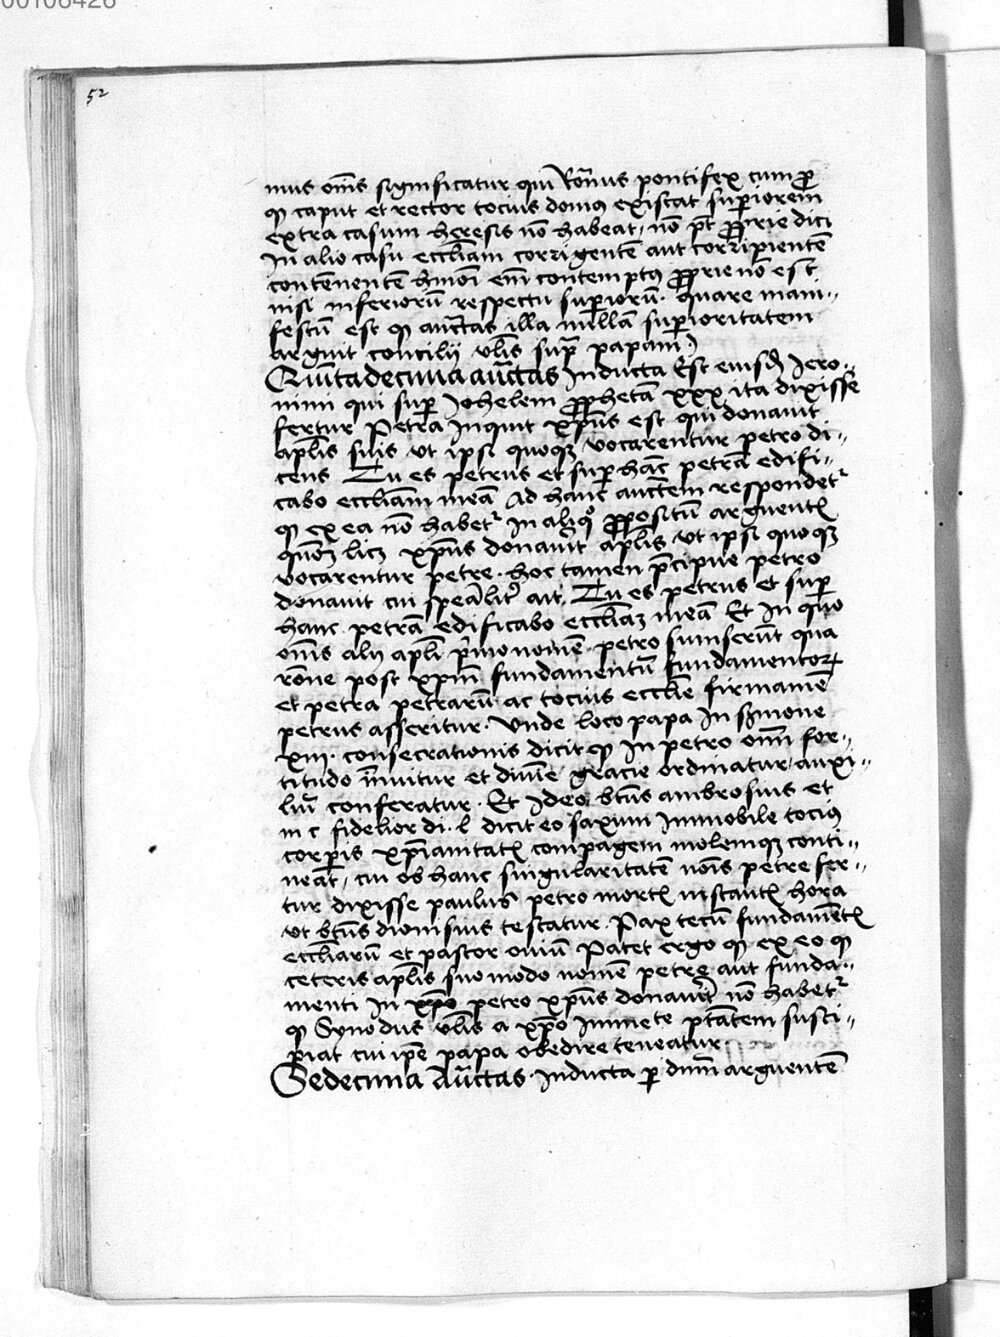 00106426
52
mus om̄s significatur qui Ro̅nus pontifex cum ꝓ
ꝙ caput et rector tocius domus existat sup̱iorem
extra casum heresis nō habeat, nō pt̄ ꝓprie dici
In alio casu eccliam corrigentē aut corripientē
contēnentē hm̄oi em̄ contemptus ꝓprie nō est
nisi inferiorū respectu sup̱iorū. quare mani„
festū est ꝙ auctas illa nullā sup̱ioritatem
arguit concilij vlis sup̱ papam)
Quītadecima auctas Inducta est eiusdē Jero„
nimi qui sup̱ Johelem ꝓphetā xxx ita dixisse
fertur Petra Inquit xp̄us est qui donauit
aplis suis vt ipsi quoqꝫ vocarentur petro di„
cens Tu es petrus et sup̱ hāc petrā edifi„
cabo eccliam meā Ad hanc auctem respondetʳ
ꝙ ex ea nō habetʳ In aliqͦ ꝓpositū arguentꝭ
quoꝫ licꝫ xp̄us donauit aplis vt ipsi quoqꝫ
vocarentur petre. hoc tamen p̄cipue petro
donauit cui spealiṫ ait. Tu es petrus et sup̱
hanc petrā edificabo ecclīaꝫ meā Et In quo
om̄s alij apli p̄mo nomē petro sumserūt qua
rōne post xpm̄ fundamentū fundamentoꝝ
et petra petrarū ac tocius ecclie firmamē
petrus asseritur. Vnde leo papa In sermone
xiij. consecrationis dicit ꝙ In petro om̄ for„
titudo munitur et diuīe gracie ordinatur auxi„
liū conferatur. Et Ideo btūs ambrosius et
in c fidelior di. l dicit eo saxum Immobile tocius
corp̱is xp̄ianitatꝭ compagem molemqꝫ conti„
neat, cui ob hanc singularitatē nōis petre fer„
tur dixisse paulus petro mortꝭ instantꝭ hora
vt btūs dionisius testatur. Pax tecū fundamētꝭ
eccliarū et pastor ouiū Patet ergo ꝙ ex eo ꝙ
ceteris aplis suo modo nomē petre aut funda„
menti In petro xp̄us donauit nō habetʳ
ꝙ Synodus vlis a xp̄o Inmete ptātem susci„
piat cui ipe papa obedire teneatur.
Sedecima Auctas. Inducta p̱ dnm̄ arguentē